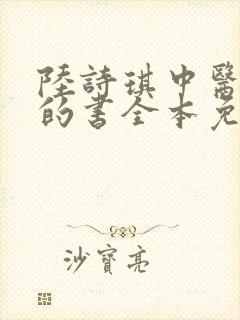 陸詩琪中醫
的書全本免
沙寶亮